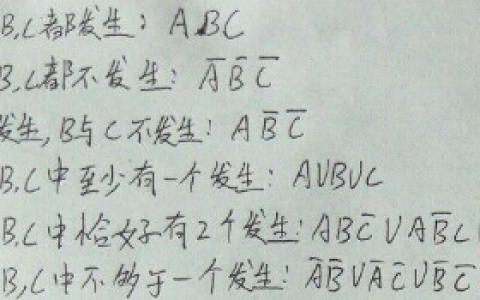 B,C都发生: ABC
B,C都不发生: A̅ B̅ C̅
发生, B与C不发生: A B̅ C̅
B,C中至少有一个发生: A∪B∪C
B,C中恰好有2个发生: ABC̅ ∪ AB̅C
B,C中不多于一个发生: A̅B̅∪A̅C̅∪B̅C̅